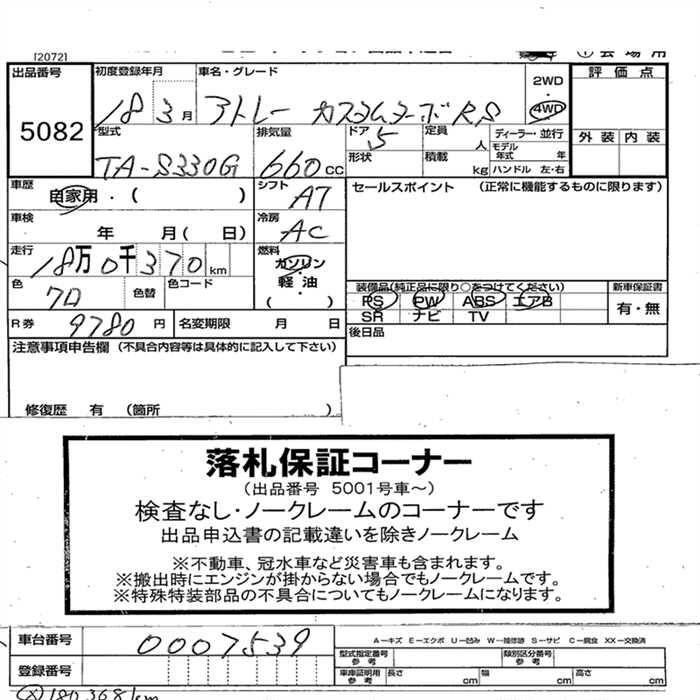 [2072]
① 会場用
出品番号 初度登録年月 車名・グレード 2WD ・ 4WD 評価点
5082 18 3月 アトレー カスタムターボRS
型式 排気量 ドア 5 定員 人 ディーラー・並行 外装 内装
TA-S330G 660cc 形状 積載 kg モデル年式 年 ハンドル 左・右
車歴 自家用・( ) シフト AT セールスポイント (正常に機能するものに限ります)
車検 年 月( 日) 冷房 AC
走行 18万0千370km 燃料 ガソリン・軽油( )
色 クロ 色替 色コード
装備品(純正品に限り○をつけてください) 新車保証書
PS PW ABS エアB 有・無
SR ナビ TV
R券 9780円 名変期限 月 日 後日品
注意事項申告欄 (不具合内容等は具体的に記入して下さい)
修復歴 有 (箇所 )
落札保証コーナー
(出品番号 5001号車~)
検査なし・ノークレームのコーナーです
出品申込書の記載違いを除きノークレーム
※不動車、冠水車など災害車も含まれます。
※搬出時にエンジンが掛からない場合でもノークレームです。
※特殊特装部品の不具合についてもノークレームになります。
車台番号 0007539 A-キズ E-エクボ U-凹み W-補修跡 S-サビ C-腐食 XX-交換済
型式指定番号 参考 類別区分番号 参考
登録番号 車庫証明用 参考 長さ cm 幅 cm 高さ cm
180,368km